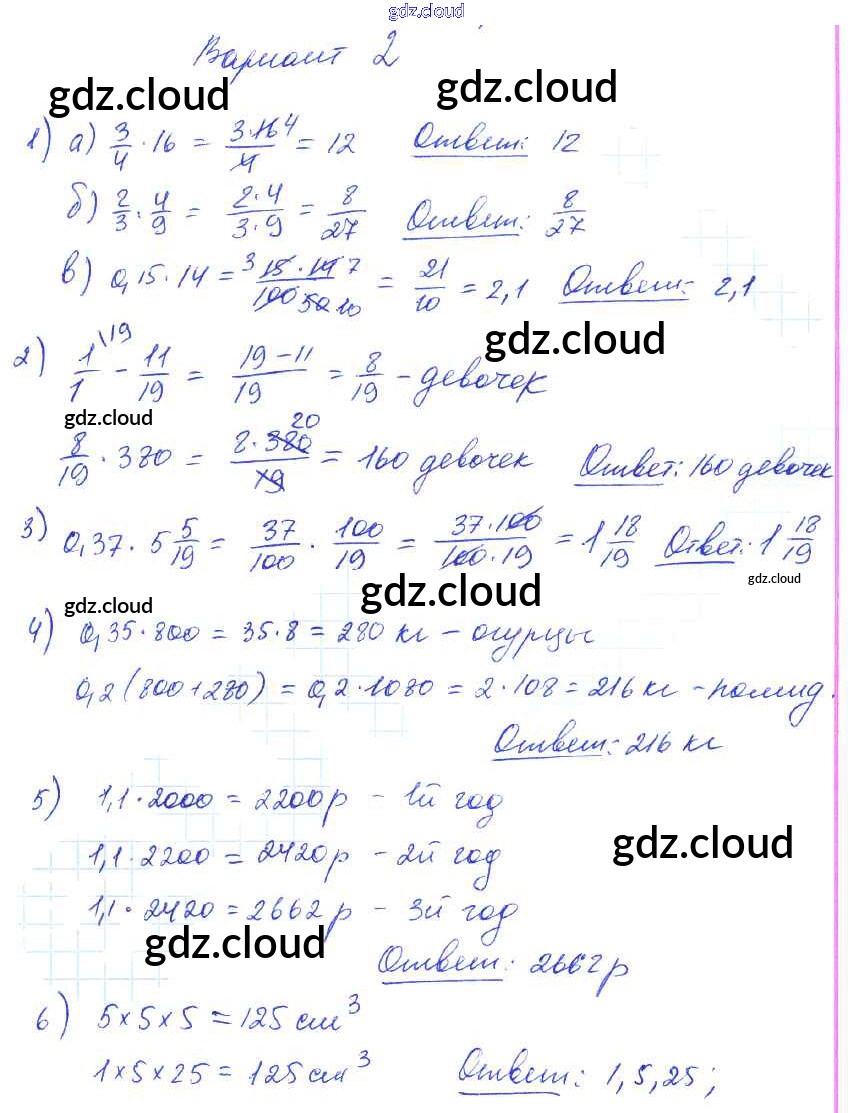 gdz.cloud
Вариант 2
gdz.cloud gdz.cloud
1) а) 3/4 · 16 = 3·16 4/4 = 12 Ответ: 12
б) 2/3 · 4/9 = 2·4/3·9 = 8/27 Ответ: 8/27
в) 0,15 · 14 = 3 15 · 14 7/100 50 10 = 21/10 = 2,1 Ответ: 2,1
gdz.cloud
2) 1\19/1 - 11/19 = 19-11/19 = 8/19 - девочек
gdz.cloud
8/19 · 380 = 8·380 20/19 = 160 девочек Ответ: 160 девочек
3) 0,37 · 5 5/19 = 37/100 · 100/19 = 37·100/100·19 = 1 18/19 Ответ: 1 18/19
gdz.cloud gdz.cloud gdz.cloud
4) 0,35·800 = 35·8 = 280 кг - огурцы
0,2(800+280) = 0,2·1080 = 2·108 = 216 кг - помид.
Ответ: 216 кг
5) 1,1·2000 = 2200р - 1й год
1,1·2200 = 2420р - 2й год
gdz.cloud
1,1·2420 = 2662р - 3й год
gdz.cloud
Ответ: 2662р
6) 5×5×5 = 125 см³
1×5×25 = 125 см³ Ответ: 1, 5, 25;